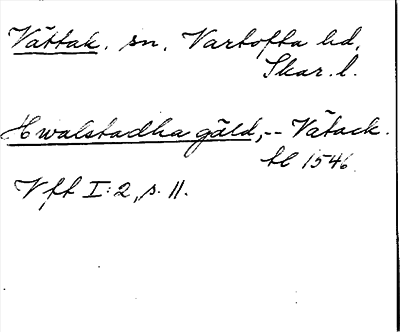 Vättak. sn. Vartofta hd.
Skar. l.
Hwalstadha gäld, -- Vätack.
tl 1546.
Vft I:2, s. 11.